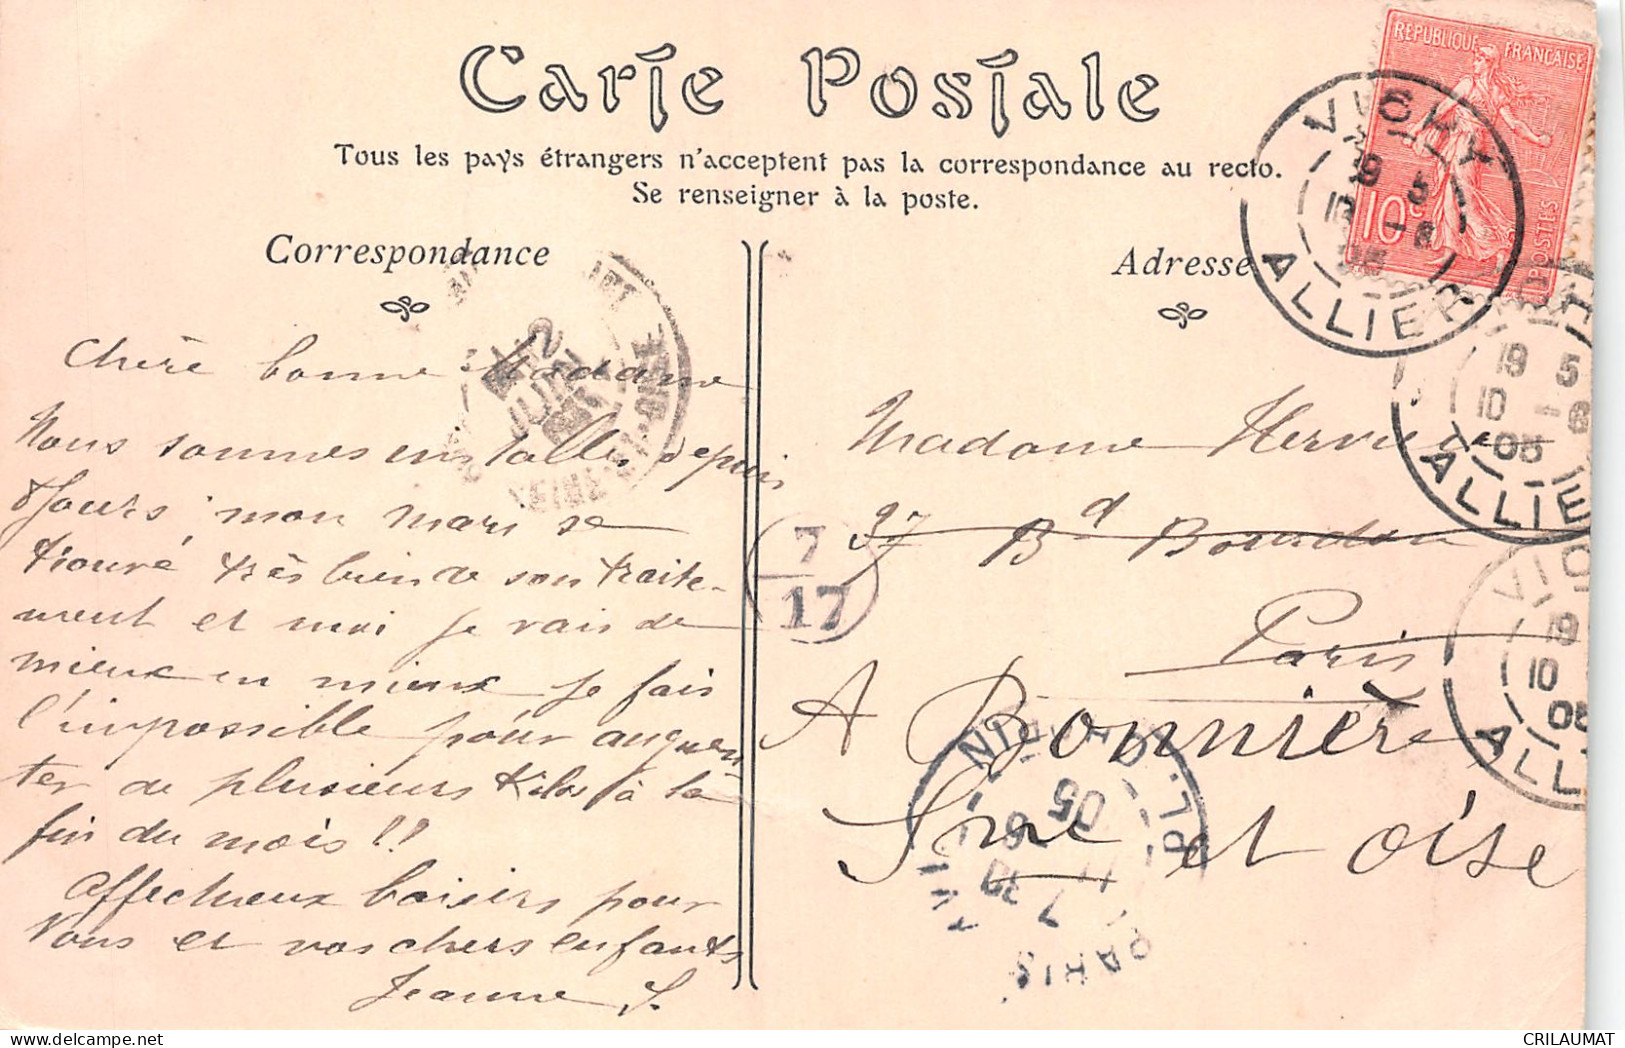 Carte Postale
Tous les pays étrangers n'acceptent pas la correspondance au recto.
Se renseigner à la poste.
Correspondance
Adresse
REPUBLIQUE FRANÇAISE
10c
POSTES
VICHY
19 5
10 -6
05
ALLIER
19 5
10 -6
05
ALLIE
VIC
19
10
05
ALL
Chère bonne Madame
Nous sommes installés depuis
8 jours, mon mari se
trouve très bien de son traite-
ment et moi je vais de
mieux en mieux je fais
l'impossible pour augmen-
ter de plusieurs kilos à la
fin du mois!!
Affectueux baisers pour
Vous et vos chers enfants
Jeanne S.
7
17
Madame Hervieu
37 Bd Bourdon
Paris
A Bonnières
Seine et Oise
JUIN
PARIS
7 30
6
05
PL. CHOPIN
CRILAUMAT